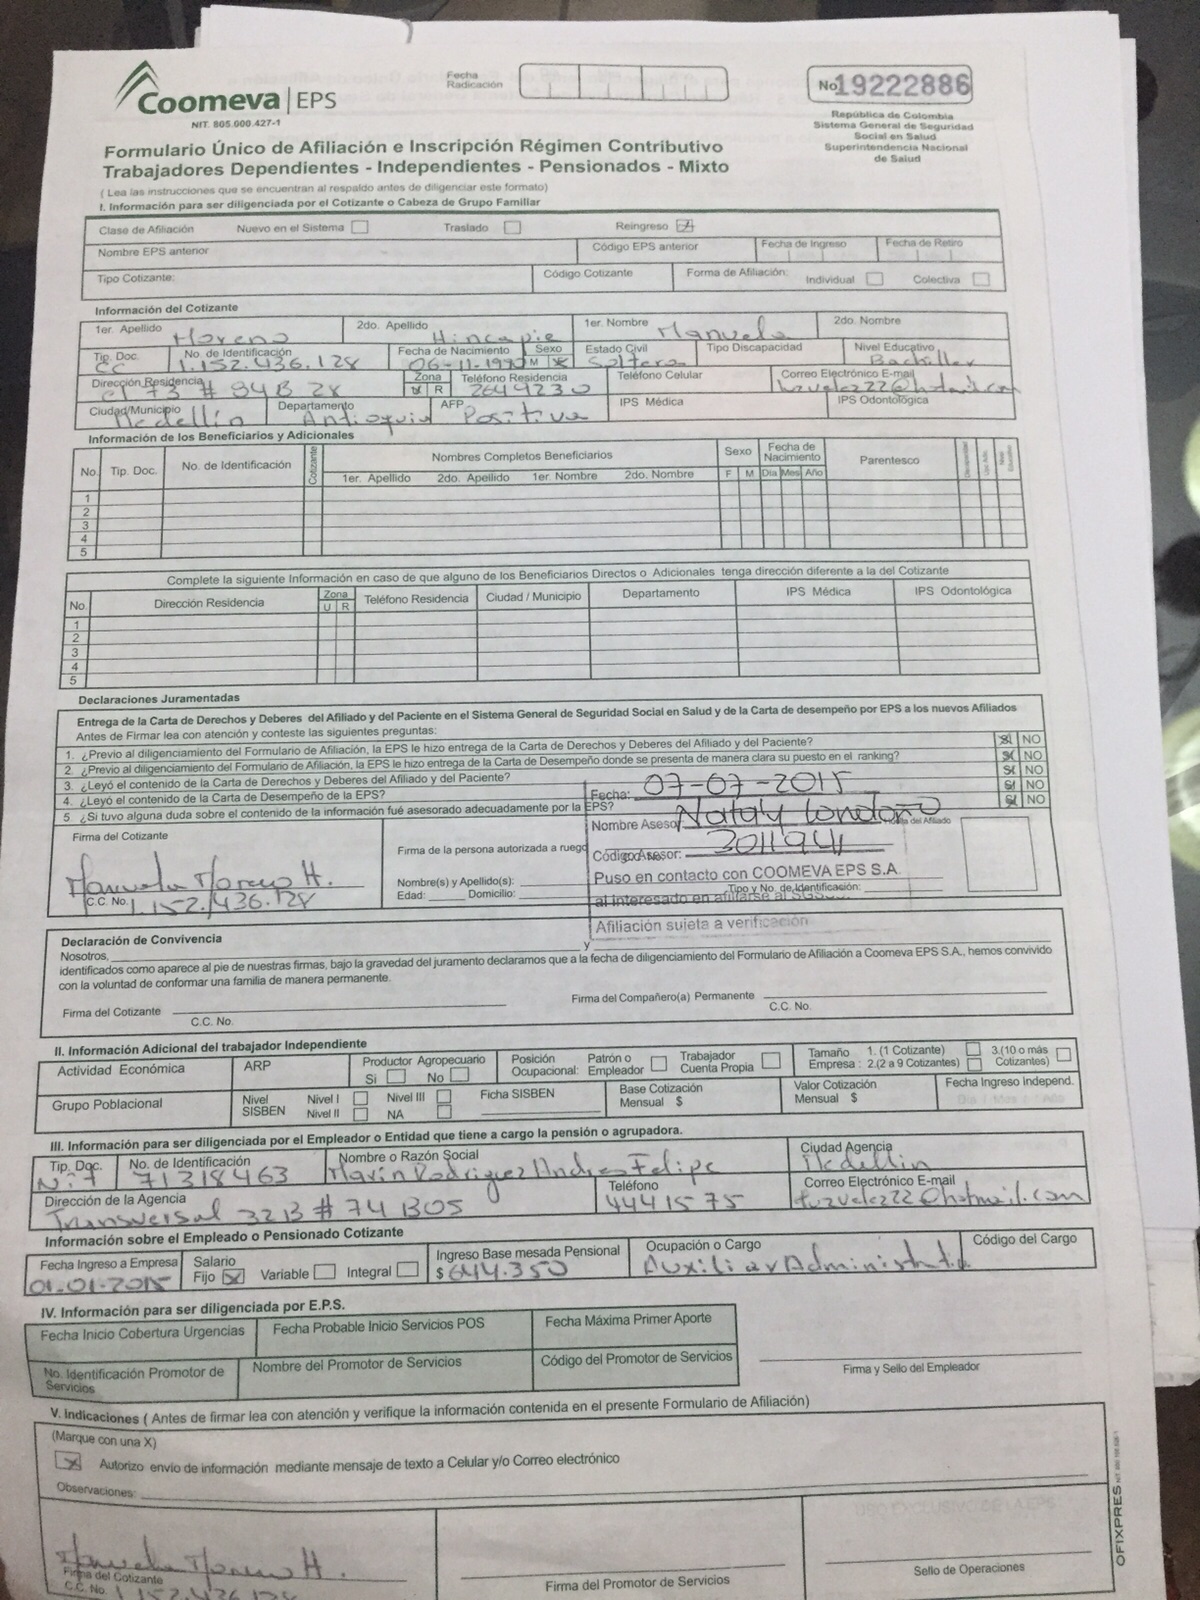 Coomeva | EPS
NIT. 805.000.427-1
Fecha Radicación
No 19222886
República de Colombia
Sistema General de Seguridad
Social en Salud
Superintendencia Nacional
de Salud
Formulario Único de Afiliación e Inscripción Régimen Contributivo
Trabajadores Dependientes - Independientes - Pensionados - Mixto
( Lea las instrucciones que se encuentran al respaldo antes de diligenciar este formato)
I. Información para ser diligenciada por el Cotizante o Cabeza de Grupo Familiar
Clase de Afiliación Nuevo en el Sistema Traslado Reingreso X
Nombre EPS anterior Código EPS anterior Fecha de Ingreso Fecha de Retiro
Tipo Cotizante: Código Cotizante Forma de Afiliación: Individual Colectiva
Información del Cotizante
1er. Apellido Moreno 2do. Apellido Hincapie 1er. Nombre Manuela 2do. Nombre
Tip. Doc. CC No. de Identificación 1.152.436.128 Fecha de Nacimiento 06-11-1990 Sexo M Estado Civil Soltera Tipo Discapacidad Nivel Educativo Bachiller
Dirección Residencia Cl 73 # 94B 28 Zona R Teléfono Residencia 2644230 Teléfono Celular Correo Electrónico E-mail luzvelez22@hotmail.com
Ciudad/Municipio Medellín Departamento Antioquia AFP Positiva IPS Médica IPS Odontológica
Información de los Beneficiarios y Adicionales
No. Tip. Doc. No. de Identificación Cotizante Nombres Completos Beneficiarios Sexo Fecha de Nacimiento Parentesco
1er. Apellido 2do. Apellido 1er. Nombre 2do. Nombre F M Día Mes Año
1
2
3
4
5
Complete la siguiente Información en caso de que alguno de los Beneficiarios Directos o Adicionales tenga dirección diferente a la del Cotizante
No. Dirección Residencia Zona U R Teléfono Residencia Ciudad / Municipio Departamento IPS Médica IPS Odontológica
1
2
3
4
5
Declaraciones Juramentadas
Entrega de la Carta de Derechos y Deberes del Afiliado y del Paciente en el Sistema General de Seguridad Social en Salud y de la Carta de desempeño por EPS a los nuevos Afiliados
Antes de Firmar lea con atención y conteste las siguientes preguntas:
1. ¿Previo al diligenciamiento del Formulario de Afiliación, la EPS le hizo entrega de la Carta de Derechos y Deberes del Afiliado y del Paciente? SI NO
2. ¿Previo al diligenciamiento del Formulario de Afiliación, la EPS le hizo entrega de la Carta de Desempeño donde se presenta de manera clara su puesto en el ranking? SI NO
3. ¿Leyó el contenido de la Carta de Derechos y Deberes del Afiliado y del Paciente? SI NO
4. ¿Leyó el contenido de la Carta de Desempeño de la EPS? SI NO
5 ¿Si tuvo alguna duda sobre el contenido de la información fué asesorado adecuadamente por la EPS? SI NO
Fecha: 07-07-2015
Nombre Asesor Nataly Londoño
Código Asesor: 3011941
Puso en contacto con COOMEVA EPS S.A.
al interesado en afiliarse al SGSSS.
Afiliación sujeta a verificación
Firma del Cotizante
Manuela Moreno H.
C.C. No. 1.152.436.128
Firma de la persona autorizada a ruego
Nombre(s) y Apellido(s): Tipo y No. de Identificación:
Edad: Domicilio:
del Afiliado
Declaración de Convivencia
Nosotros, y
identificados como aparece al pie de nuestras firmas, bajo la gravedad del juramento declaramos que a la fecha de diligenciamiento del Formulario de Afiliación a Coomeva EPS S.A., hemos convivido
con la voluntad de conformar una familia de manera permanente.
Firma del Cotizante Firma del Compañero(a) Permanente
C.C. No. C.C. No.
II. Información Adicional del trabajador Independiente
Actividad Económica ARP Productor Agropecuario Si No Posición Ocupacional: Patrón o Empleador Trabajador Cuenta Propia Tamaño Empresa : 1. (1 Cotizante) 2.(2 a 9 Cotizantes) 3.(10 o más Cotizantes)
Grupo Poblacional Nivel SISBEN Nivel I Nivel II Nivel III NA Ficha SISBEN Base Cotización Mensual $ Valor Cotización Mensual $ Fecha Ingreso Independ. Día Mes Año
III. Información para ser diligenciada por el Empleador o Entidad que tiene a cargo la pensión o agrupadora.
Tip. Doc. Nit No. de Identificación 71318463 Nombre o Razón Social Marín Rodriguez Andres Felipe Ciudad Agencia Medellin
Dirección de la Agencia Transversal 32B # 74 B05 Teléfono 4441575 Correo Electrónico E-mail luzvelez22@hotmail.com
Información sobre el Empleado o Pensionado Cotizante
Fecha Ingreso a Empresa 01-01-2015 Salario Fijo X Variable Integral Ingreso Base mesada Pensional $ 644.350 Ocupación o Cargo Auxiliar Administrativa Código del Cargo
IV. Información para ser diligenciada por E.P.S.
Fecha Inicio Cobertura Urgencias Fecha Probable Inicio Servicios POS Fecha Máxima Primer Aporte
No. Identificación Promotor de Servicios Nombre del Promotor de Servicios Código del Promotor de Servicios
Firma y Sello del Empleador
V. Indicaciones ( Antes de firmar lea con atención y verifique la información contenida en el presente Formulario de Afiliación)
(Marque con una X)
X Autorizo envío de información mediante mensaje de texto a Celular y/o Correo electrónico
Observaciones:
Manuela Moreno H.
Firma del Cotizante
C.C. No. 1.152.436.128
Firma del Promotor de Servicios
Sello de Operaciones
OFIXPRES